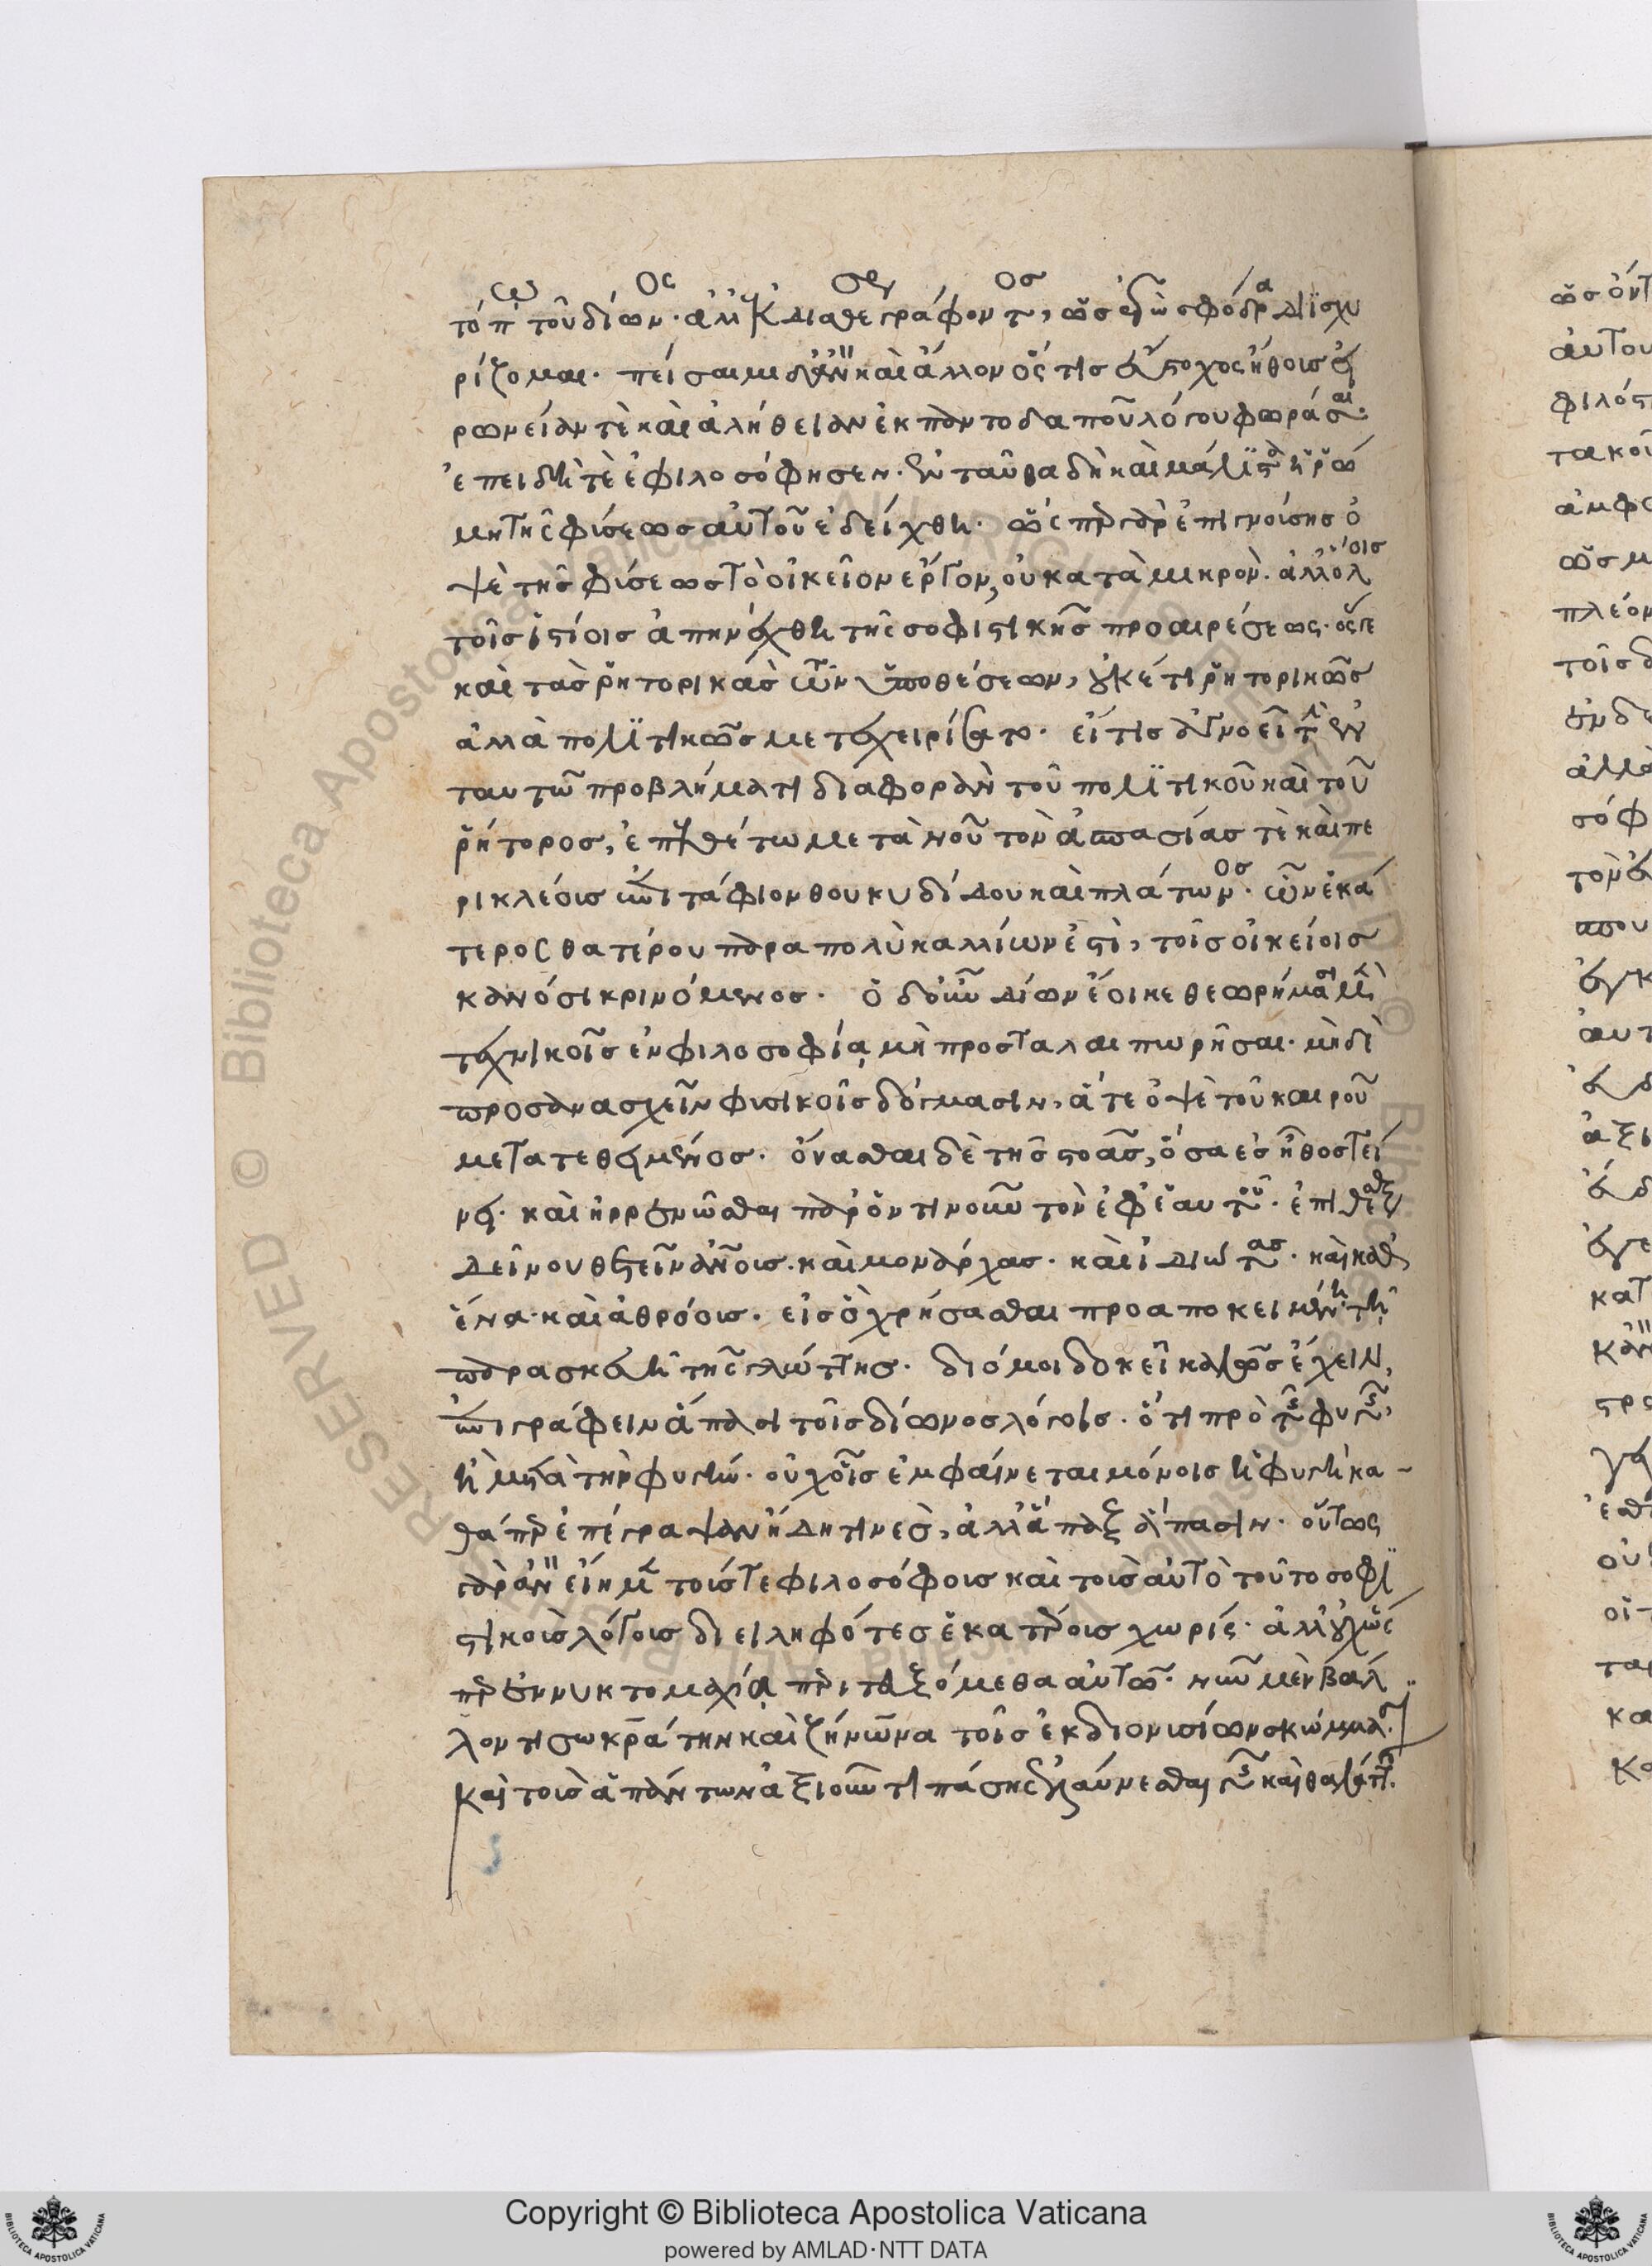 τό π τοῦ δίωνος· ἀλλ' ἐκ διαθέσεως γράφοντος, ὡς ἐγὼ σφόδρα διϊσχυ
ρίζομαι· πείσαιμι δ' ἂν καὶ ἄλλον ὅστις εὔστοχος ἤθους εἰ
ρωνείαν τὲ καὶ ἀλήθειαν ἐκ παντοδαποῦ λόγου φωράσαι·
ἐπειδὴ τὲ ἐφιλοσόφησεν· ἐνταῦθα δὴ καὶ μάλιστα ἡ ῥώ
μη τῆς φύσεως αὐτοῦ ἐδείχθη· ὥσπερ γὰρ ἐπιγνούσης ὀ
ψὲ τῆς φύσεως τὸ οἰκεῖον ἔργον, οὐ κατὰ μικρὸν· ἀλλ' ὅλοις
τοῖς ἱστίοις ἀπηνέχθη τῆς σοφιστικῆς προαιρέσεως· ὅς γε
καὶ τὰς ῥητορικὰς τῶν ὑποθέσεων, οὐκέτι ῥητορικῶς
ἀλλὰ πολιτικῶς μετεχειρίσατο· εἴ τις ἀγνοεῖ τὴν ἐν
ταυτῶ προβλήματι διαφορὰν τοῦ πολιτικοῦ καὶ τοῦ
ῥήτορος, ἐπελθέτω μετὰ νοῦ τὸν ἀσπασίας τὲ καὶ πε
ρικλέους ἐπιτάφιον θουκυδίδου καὶ πλάτωνος· ὧν ἑκά
τερος θατέρου παρα πολὺ καλλίων ἐστὶ, τοῖς οἰκείοις
κανόσι κρινόμενος· ὁ δ' οὖν δίων ἔοικε θεωρήμασι μὲν
τεχνικοῖς ἐν φιλοσοφία μὴ προσταλαιπωρῆσαι· μὴ δὲ
προσανασχεῖν φυσικοῖς δόγμασιν, ἅτε ὀψὲ τοῦ καιροῦ
μετατεθειμένος· ὄνασθαι δὲ τῆς στοᾶς, ὅσα ἐς ἦθος τεί
νει· καὶ ἠρρενῶσθαι παρ' ὁντινοῦν τὸν ἐφ' ἑαυτοῦ· ἐπιθέσθαι
δεῖ νουθετεῖν ἀνθρώπους· καὶ μονάρχας· καὶ ἰδιώτας· καὶ καθ'
ἕνα· καὶ ἀθρόους· εἰς ὃ χρήσασθαι προαποκειμένη τῆ
παρασκευῆ τῆς γλώττης· διό μοι δοκεῖ καλῶς ἔχειν,
ἐπιγράφειν ἅπασι τοῖς δίωνος λόγοις· ὅτι πρὸ τῆς φυγῆς,
ἢ μετὰ τὴν φυγὴν· οὐχ οἷς ἐμφαίνεται μόνοις ἡ φυγὴ κα-
θάπερ ἐπέγραψαν ἤδη τινες, ἀλλ' ἁπαξάπασιν· οὕτως
γὰρ ἂν εἴημεν τούς τε φιλοσόφους καὶ τοὺς αὐτὸ τοῦτο σοφι
στικοὺς λόγους διειληφότες ἑκατέρους χωρίς· ἀλλ' οὐχ ὥς
περ ἐν νυκτομαχία περιταξόμεθα αὐτῶ· νῦν μὲν βάλ
λοντι σωκράτην καὶ ζήνωνα τοῖς ἐκ διονυσίων σκώμμασι
καὶ τοὺς ἀπ' αὐτῶν ἀξιοῦντι πάσης ἐλαύνεσθαι γῆς καὶ θαλάττης·